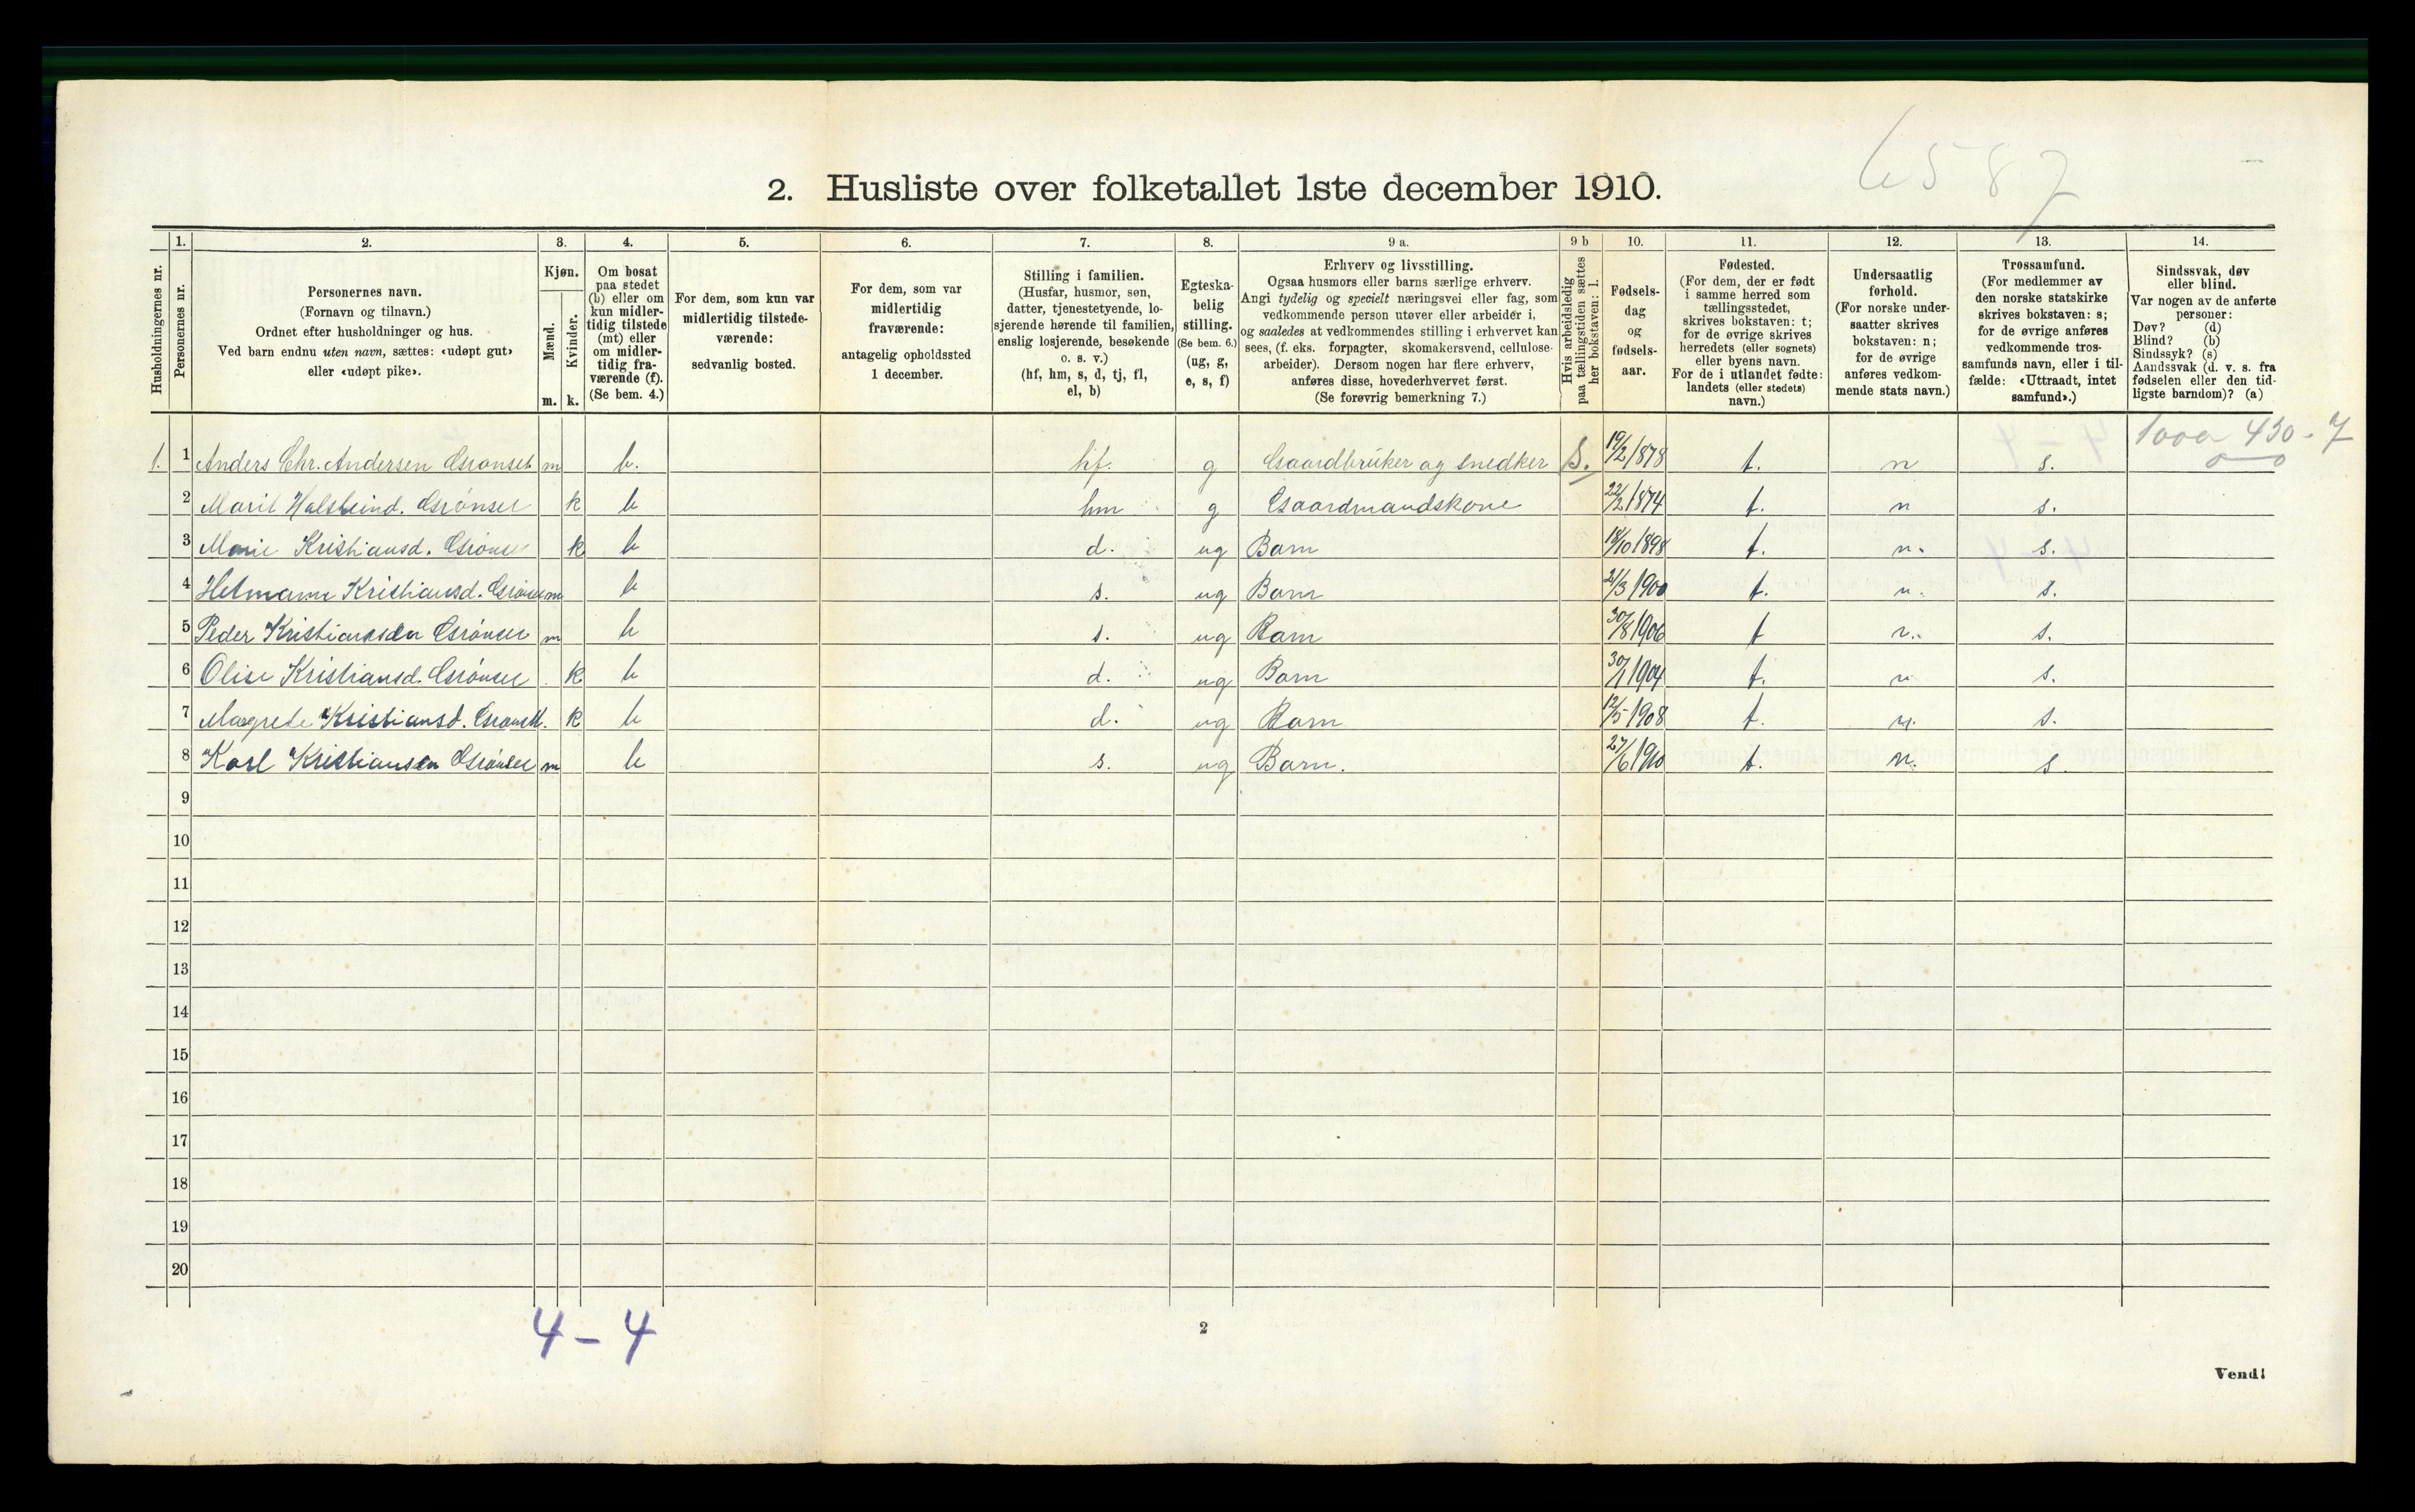 6587
2. Husliste over folketallet 1ste december 1910.
Husholdningernes nr.
1. Personernes nr.
2. Personernes navn.
(Fornavn og tilnavn.)
Ordnet efter husholdninger og hus.
Ved barn endnu uten navn, sættes: «udøpt gut»
eller «udøpt pike».
3. Kjøn.
Mænd. m.
Kvinder. k.
4. Om bosat
paa stedet
(b) eller om
kun midler-
tidig tilstede
(mt) eller
om midler-
tidig fra-
værende (f).
(Se bem. 4.)
5. For dem, som kun var
midlertidig tilstede-
værende:
sedvanlig bosted.
6. For dem, som var
midlertidig
fraværende:
antagelig opholdssted
1 december.
7. Stilling i familien.
(Husfar, husmor, søn,
datter, tjenestetyende, lo-
sjerende hørende til familien,
enslig losjerende, besøkende
o. s. v.)
(hf, hm, s, d, tj, fl,
el, b)
8. Egteska-
belig
stilling.
(Se bem. 6.)
(ug, g,
e, s, f)
9 a. Erhverv og livsstilling.
Ogsaa husmors eller barns særlige erhverv.
Angi tydelig og specielt næringsvei eller fag, som
vedkommende person utøver eller arbeider i,
og saaledes at vedkommendes stilling i erhvervet kan
sees, (f. eks. forpagter, skomakersvend, cellulose-
arbeider). Dersom nogen har flere erhverv,
anføres disse, hovederhvervet først.
(Se forøvrig bemerkning 7.)
9 b Hvis arbeidsledig
paa tællingstiden sættes
her bokstaven: l.
10. Fødsels-
dag
og
fødsels-
aar.
11. Fødested.
(For dem, der er født
i samme herred som
tællingsstedet,
skrives bokstaven: t;
for de øvrige skrives
herredets (eller sognets)
eller byens navn.
For de i utlandet fødte:
landets (eller stedets)
navn.)
12. Undersaatlig
forhold.
(For norske under-
saatter skrives
bokstaven: n;
for de øvrige
anføres vedkom-
mende stats navn.)
13. Trossamfund.
(For medlemmer av
den norske statskirke
skrives bokstaven: s;
for de øvrige anføres
vedkommende tros-
samfunds navn, eller i til-
fælde: «Uttraadt, intet
samfund».)
14. Sindssvak, døv
eller blind.
Var nogen av de anførte
personer:
Døv? (d)
Blind? (b)
Sindssyk? (s)
Aandssvak (d. v. s. fra
fødselen eller den tid-
ligste barndom)? (a)
1000 430-7
1. 1 Anders Chr. Andersen Grønset m b. hf. g Gaardbruker og snedker S. 19/2 1878 t. n s.
2 Marit Halsteind. Grønset k b hm g Gaardmandskone 22/2 1874 t. n s.
3 Marie Kristiansd. Grønset k b d. ug Barn 18/10 1898 t. n. s.
4 Kristiansd. Grønset m b s. ug Barn 21/3 1900 t. n. s.
5 Peder Kristiansen Grønset m b s. ug Barn 30/8 1906 t n. s.
6 Olise Kristiansd. Grønset k b d. ug Barn 30/1 1904 t. n s.
7 Magrete Kristiansd. Grønset. k b d. ug Barn 12/5 1908 t. n. s.
8 Karl Kristiansen Grønset m b s. ug Barn. 27/6 1910 t. n. s
9
10
11
12
13
14
15
16
17
18
19
20
4 - 4
2
Vend!